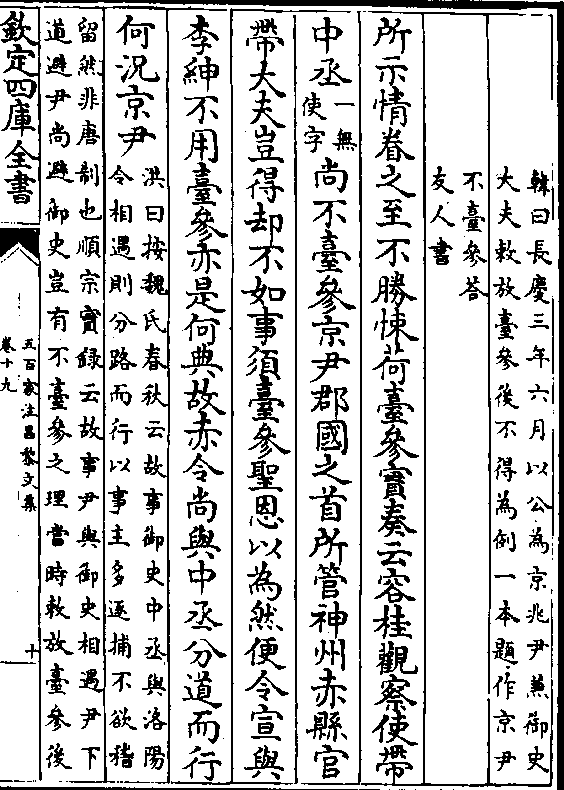 韓曰長慶三年六月以公為京兆尹兼御史
大夫敕放臺參後不得為例一本題作京尹
不臺參荅
友人書
所示情眷之至不勝悚荷臺參實奏云容桂觀察使帶
中丞一無使字尚不臺參京尹郡國之首所管神州赤縣官
帶大夫豈得却不如事須臺參聖恩以為然便令宣與
李紳不用臺參亦是何典故赤令尚與中丞分道而行
何況京尹洪曰按魏氏春秋云故事御史中丞與洛陽
令相遇則分路而行以事主多逐捕不欲稽
留然非唐制也順宗實録云故事尹與御史相遇尹下
道避尹尚避御史豈有不臺參之理當時敕放臺參後
欽定四庫全書
五百家注昌黎文集
卷十九
十